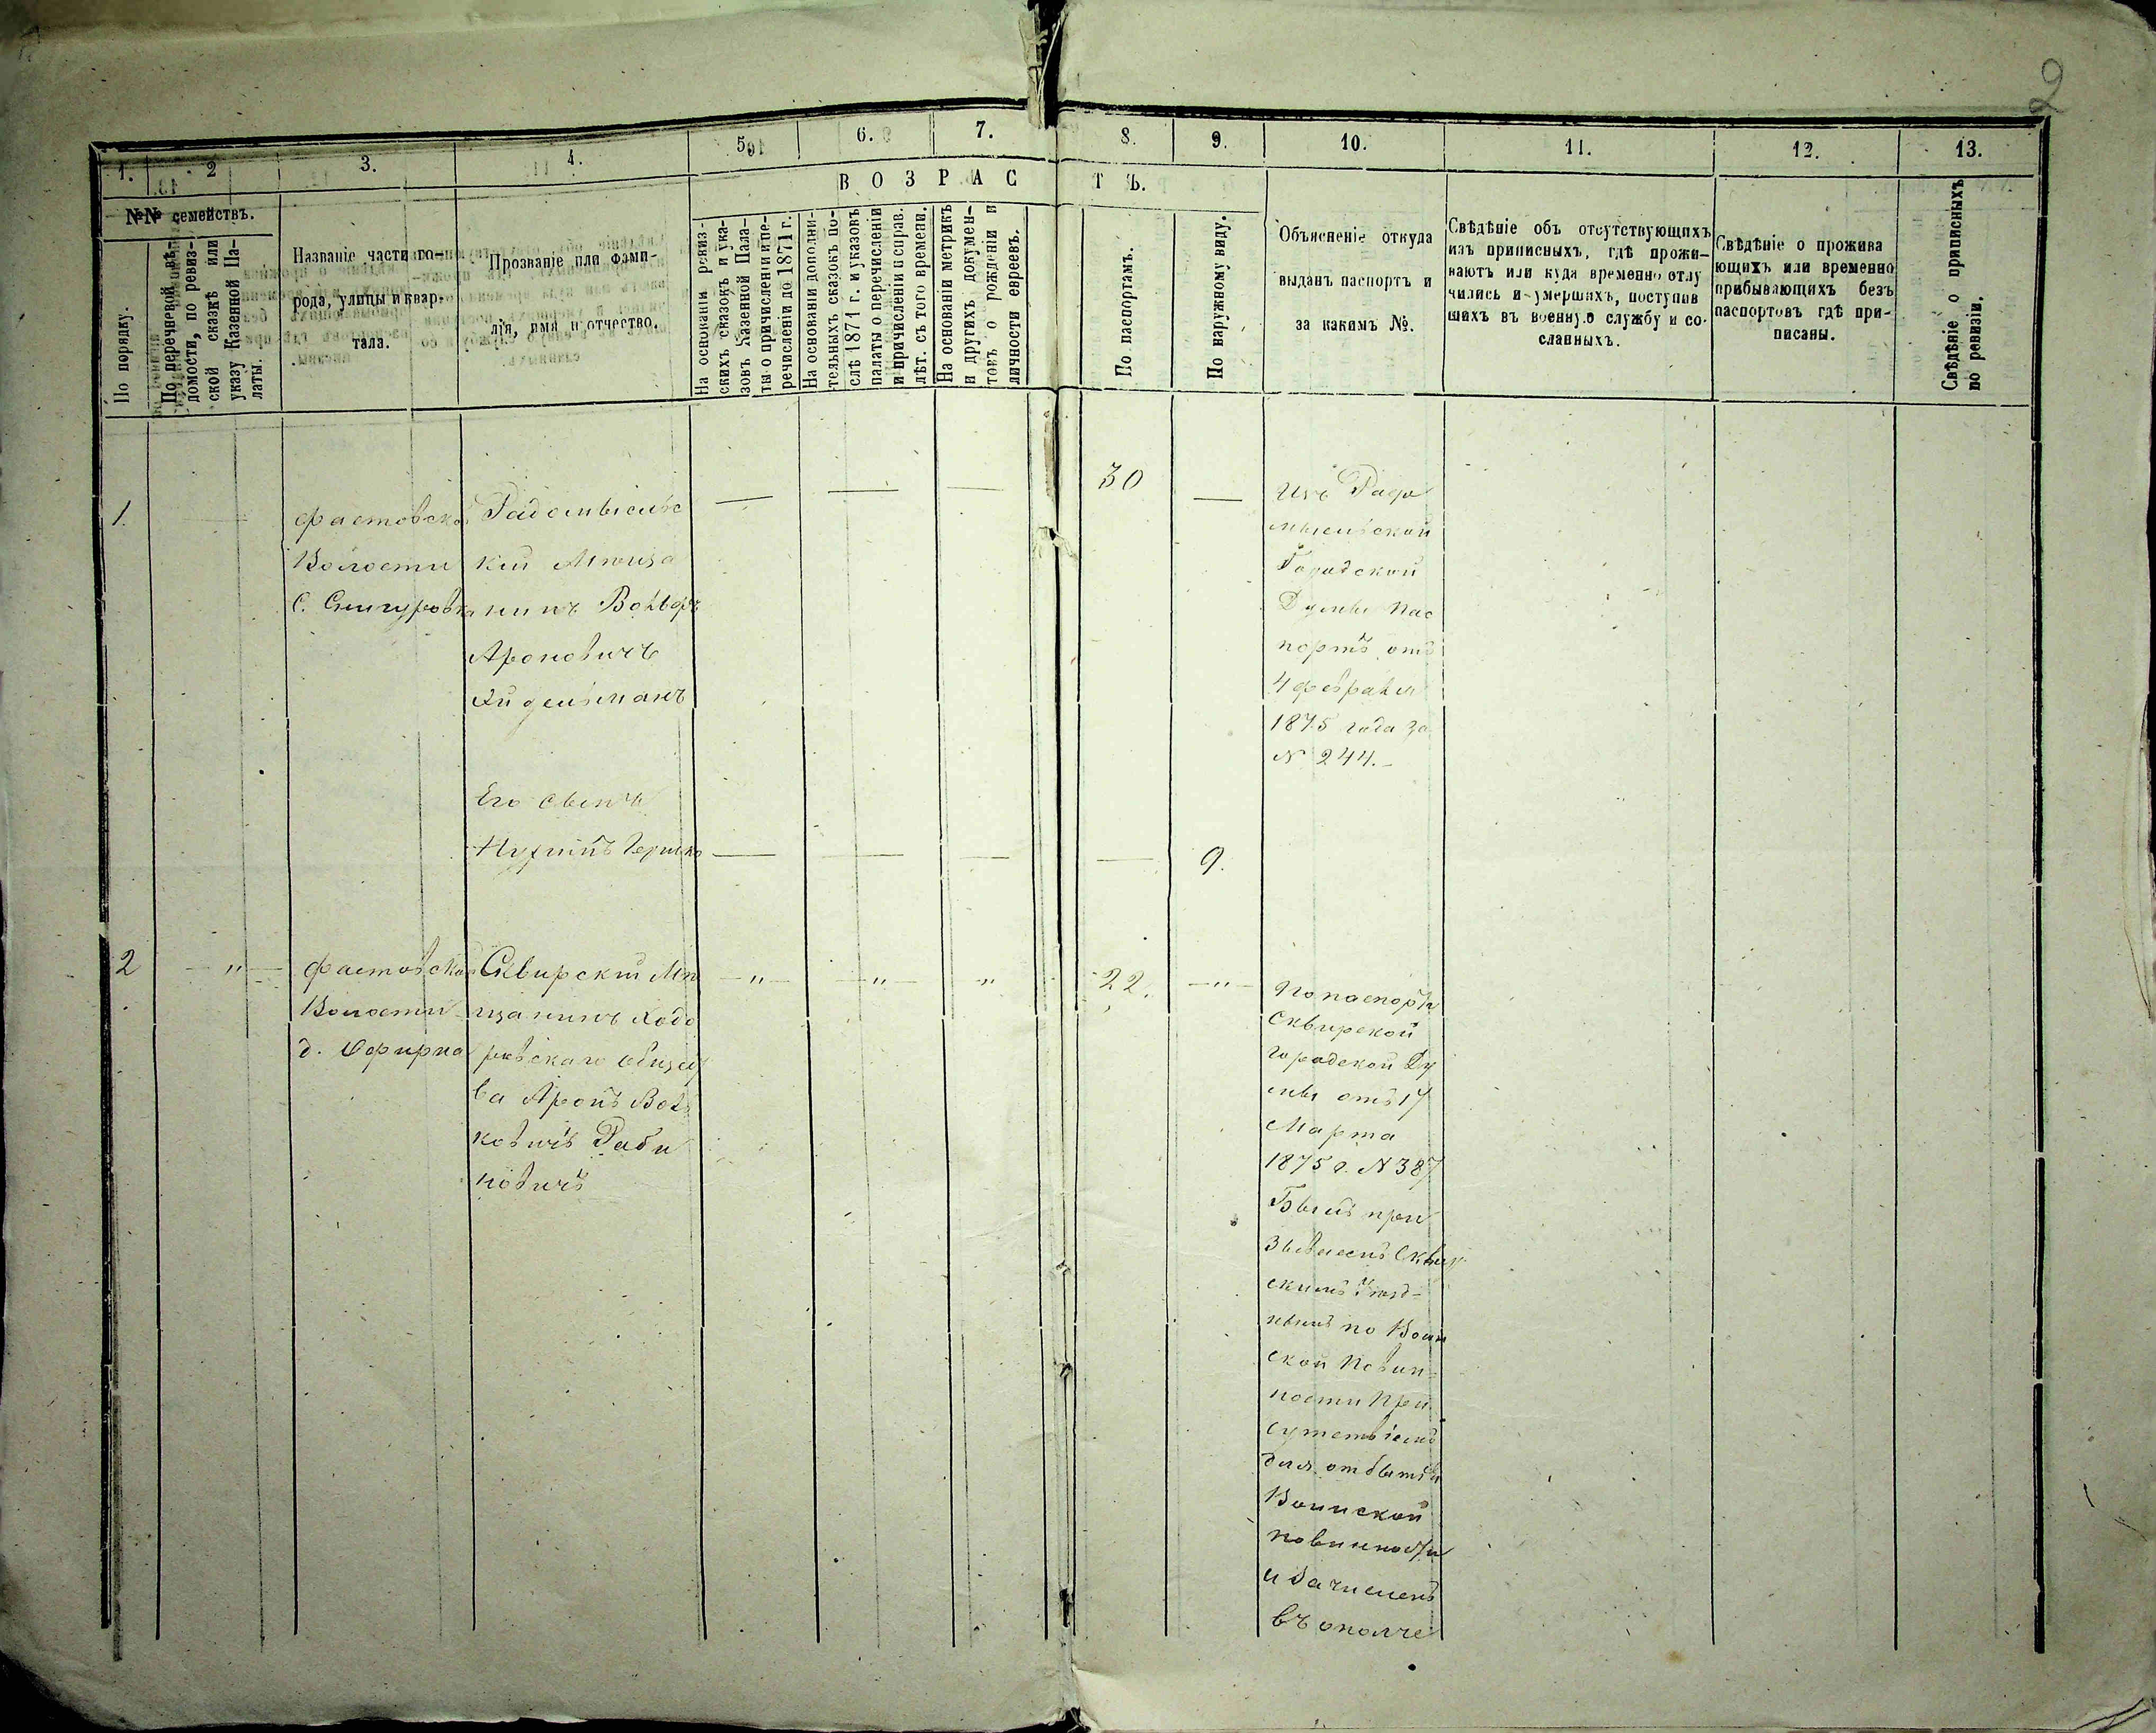 2
1.
2
3.
4.
5.
6.
7.
8.
9.
10.
11.
12.
13.
ВОЗРАСТЪ.
№№ семействъ.
По порядку.
По перечневой вѣ-
домости, по ревиз-
ской сказкѣ или
указу Казенной Па-
латы.
Названіе части го-
рода, улицы и квар-
тала.
Прозваніе или фами-
лія, имя и отчество.
На основаніи ревиз-
скихъ сказокъ и ука-
зовъ Казенной Пала-
ты о причисленіи и пе-
речисленіи до 1871 г.
На основаніи дополни-
тельныхъ сказокъ по-
слѣ 1871 г. и указовъ
палаты о перечисленіи
и причисленіи и справ.
лѣт. съ того времени.
На основаніи метрикъ
и другихъ докумен-
товъ о рожденіи и
личности евреевъ.
По паспортамъ.
По наружному виду.
Объясненіе откуда
выданъ паспортъ и
за какимъ №.
Свѣдѣніе объ отсутствующихъ
изъ приписныхъ, гдѣ прожи-
ваютъ или куда временно отлу
чились и умершихъ, поступив
шихъ въ военную службу и со-
сланныхъ.
Свѣдѣніе о прожива
ющихъ или временно
прибывающихъ безъ
паспортовъ гдѣ при-
писаны.
Свѣдѣніе о приписныхъ
по ревизіи.
1.
Фастовской
Волости
С. Снигуровка
Радомысльс
кій Мѣща
нинъ Вольфъ
Ароновичъ
Айдельманъ
30
Изъ Радо
мысльской
Городской
Думы пас
портъ отъ
4 февраля
1875 года за
№ 244.
Его сынъ
Нухимъ Гершко
9.
2
"
Фастовской
Волости
д. Офирна
Сквирскій Мѣ
щанинъ Ходо
ровскаго общест
ва Аронъ Воль
ковичъ Раби
новичъ
"
"
"
22.
"
По паспорту
Сквирской
городской Ду
мы отъ 17
Марта
1875 г. № 387
Былъ при
званъ Сквир
скимъ Уѣзд-
нымъ по Воин
ской Повин-
ности При
сутствіемъ
для отбытія
Воинской
повинности
и зачисленъ
въ ополче